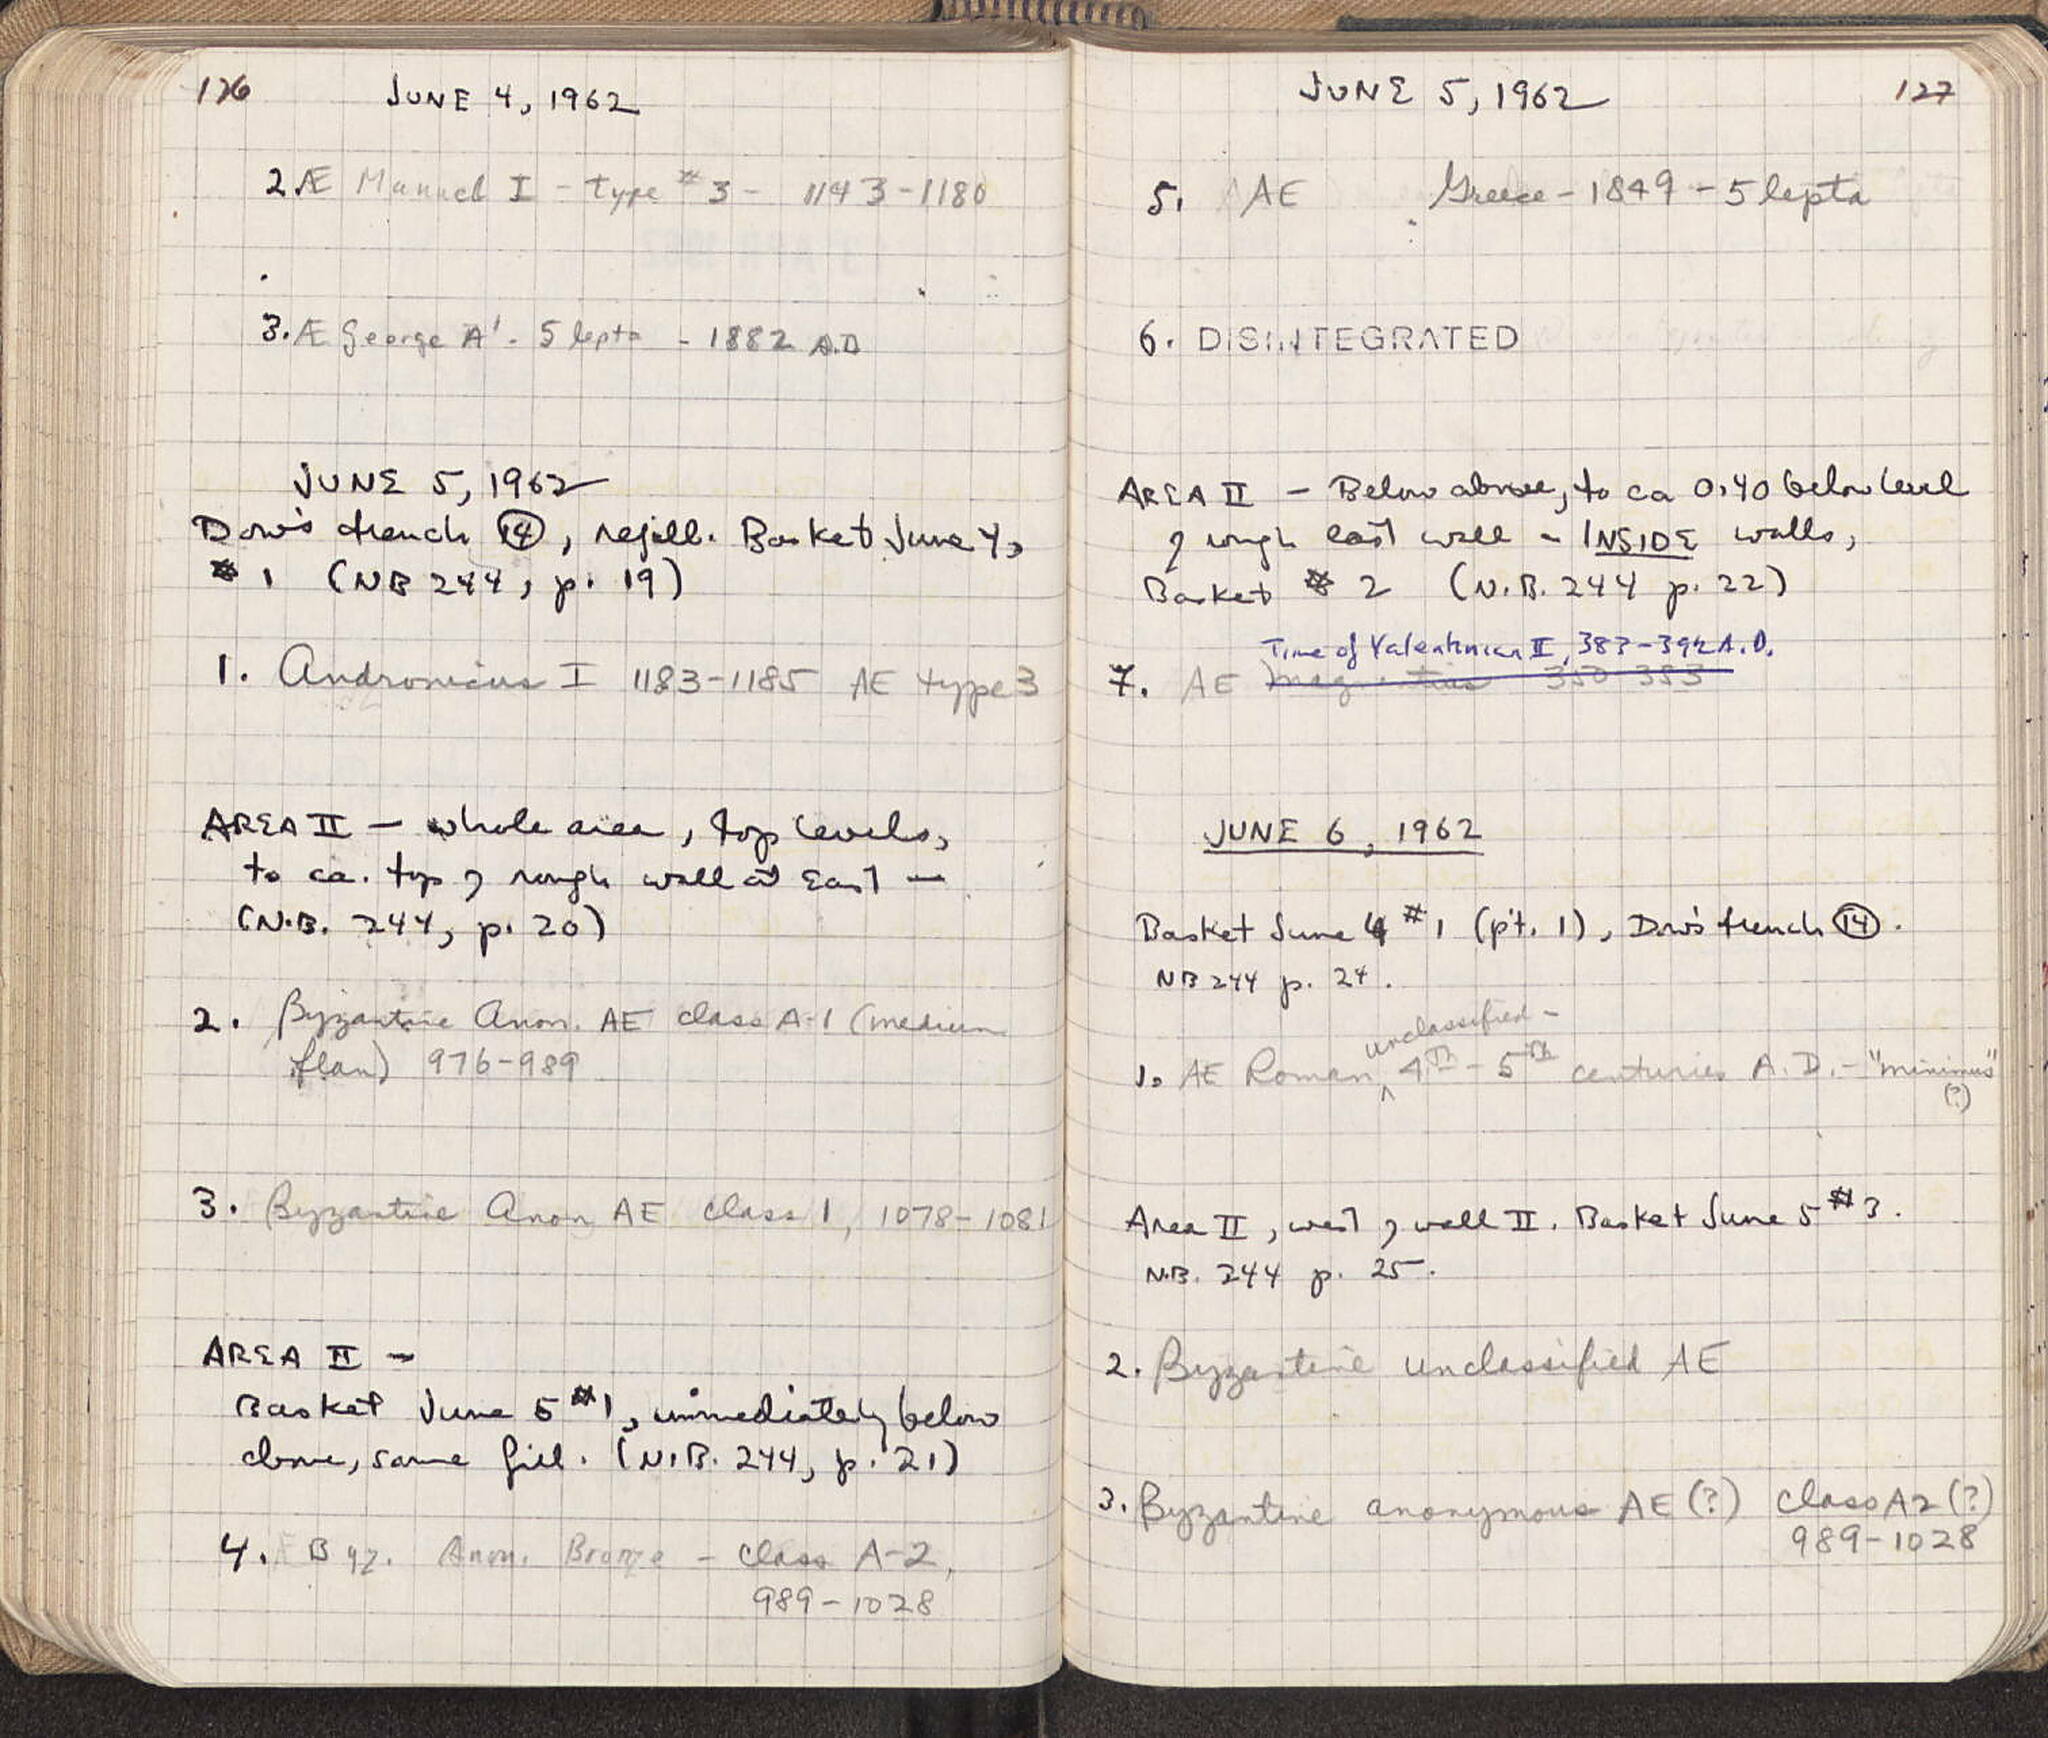 126
JUNE 4, 1962
2. Æ Manuel I - type #3 - 1143-1180
3. Æ George A' - 5 lepta - 1882 A.D
JUNE 5, 1962
Dow's trench (14), refill. Basket June 4,
#1 (NB 244, p. 19)
1. Andronicus I 1183-1185 AE type 3
AREA II - whole area, top levels,
to ca. top of rough wall at East -
(N.B. 244, p. 20)
2. Byzantine Anon. AE class A-1 (medium
flan) 976-989
3. Byzantine Anon AE class I, 1078-1081
AREA II -
Basket June 5 #1, immediately below
above, same fill. (N.B. 244, p. 21)
4. Æ Byz. Anon. Bronze - class A-2,
989-1028
JUNE 5, 1962
127
5. AE Greece - 1849 - 5 lepta
6. DISINTEGRATED
AREA II - Below above, to ca 0.40 below level
of rough east wall - INSIDE walls,
Basket #2 (N.B. 244 p. 22)
Time of Valentinian II, 383-392 A.D.
7. AE Magnentius 350-353
JUNE 6, 1962
Basket June 4 #1 (pt. 1), Dow's trench (14).
NB 244 p. 24.
unclassified -
1. AE Roman ^ 4th - 5th centuries A.D. - "minimus"
(?)
Area II, west of wall II. Basket June 5 #3.
N.B. 244 p. 25.
2. Byzantine unclassified AE
3. Byzantine anonymous AE (?) class A2 (?)
989-1028